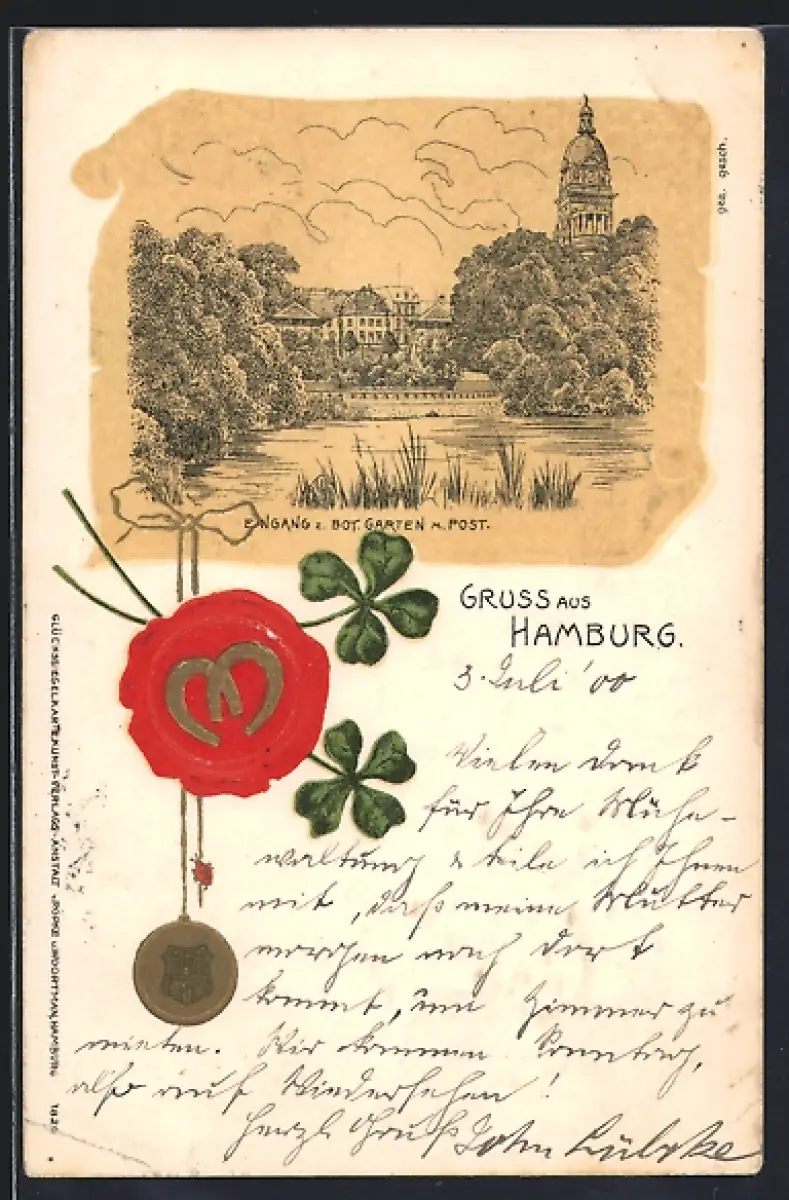 ges. gesch.
EINGANG z. BOT. GARTEN m. POST.
GRUSS AUS
HAMBURG.
3. Juli '00
Vielen Dank
für Ihre Mühe-
waltung & teile ich Ihnen
mit, daß meine Mutter
morgen nach dort
kommt, um Zimmer zu
mieten. Wir kommen Sonntag,
also auf Wiedersehen!
Herzl. Gruß John Lübcke
GLÜCKSSIEGELKARTE KUNST-VERLAGS-ANSTALT HAMBURG